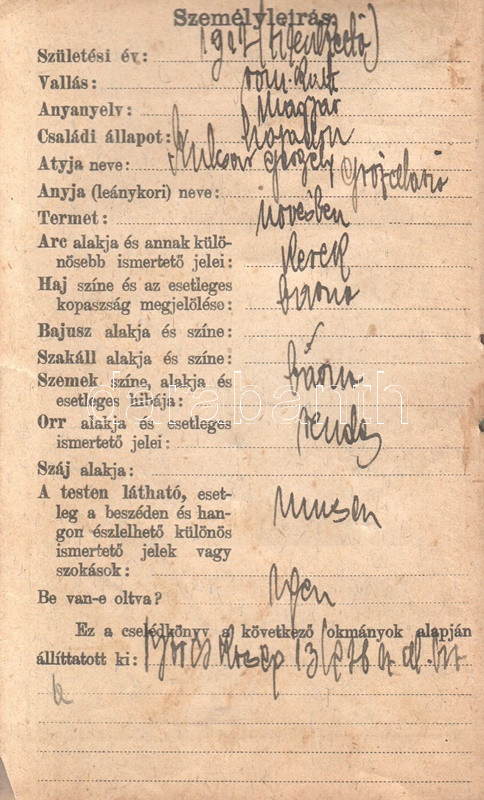 Személyleírás:
Születési év:
Vallás: róm. kath
Anyanyelv: Magyar
Családi állapot: hajadon
Atyja neve: Kulcsár Gergely
Anyja (leánykori) neve:
Termet: növésben
Arc alakja és annak külö-
nösebb ismertető jelei: kerek
Haj színe és az esetleges
kopaszság megjelölése: barna
Bajusz alakja és színe:
Szakáll alakja és színe:
Szemek színe, alakja és
esetleges hibája: barna
Orr alakja és esetleges
ismertető jelei: rendes
Száj alakja:
A testen látható, eset-
leg a beszéden és han-
gon észlelhető különös
ismertető jelek vagy
szokások: nincsen
Be van-e oltva? Igen
Ez a cselédkönyv a következő okmányok alapján
állíttatott ki:
darabanth